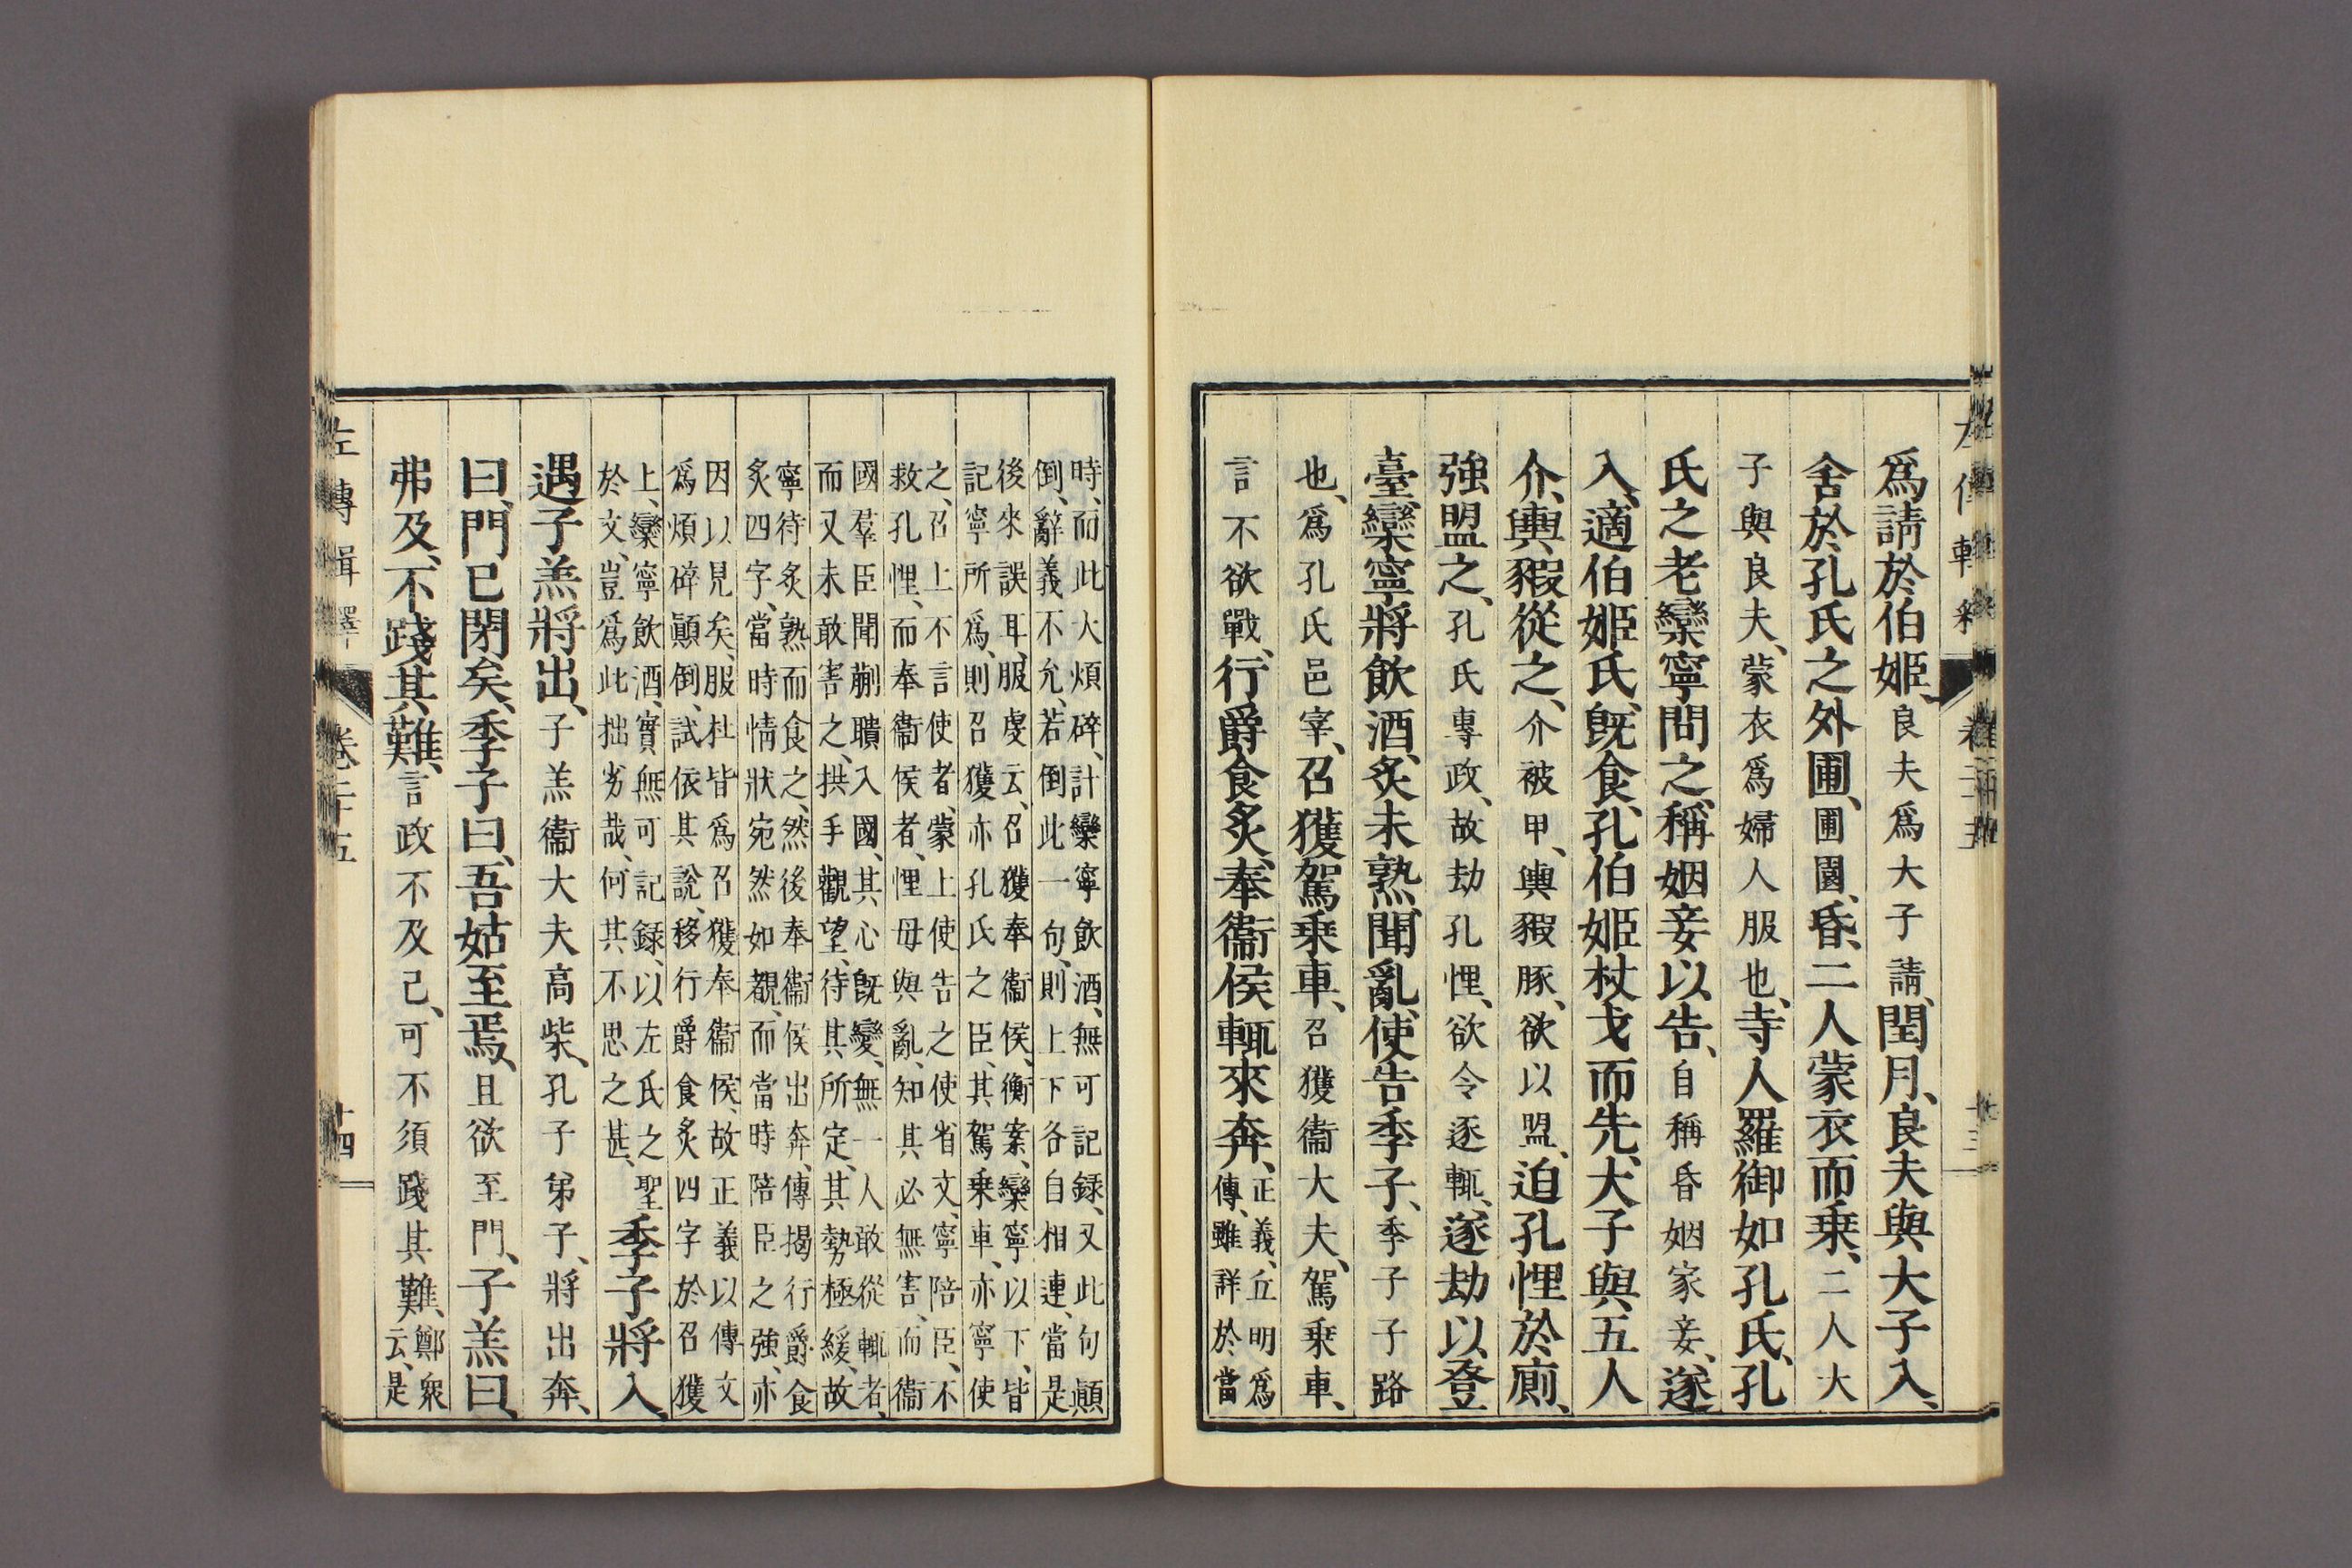 爲請於伯姬、良夫爲大子請、閏月、良夫與大子入、
舍於孔氏之外圃、圃園、昏、二人蒙衣而乗、二人大
子與良夫、蒙衣爲婦人服也、寺人羅御如孔氏、孔
氏之老欒寧問之、稱姻妾以告、自稱昏姻家妾、遂
入、適伯姬氏、旣食、孔伯姬杖戈而先、大子與五人
介、輿豭從之、介被甲、輿豭豚、欲以盟、迫孔悝於廁、
強盟之、孔氏專政、故劫孔悝、欲令逐輒、遂劫以登
臺、欒寧將飲酒、炙未熟、聞亂、使告季子、季子子路
也、爲孔氏邑宰、召獲駕乗車、召獲衞大夫、駕乗車、
言不欲戰、行爵食炙、奉衞侯輒來奔、正義、丘明爲
傳、雖詳於當
時、而此大煩碎、計欒寧飲酒、無可記録、又此句顚
倒、辭義不允、若倒此一句、則上下各自相連、當是
後來誤耳、服虔云、召獲奉衞侯、衡案、欒寧以下、皆
記寧所爲、則召獲亦孔氏之臣、其駕乗車、亦寧使
之、召上不言使者、蒙上使告之使省文、寧陪臣、不
救孔悝、而奉衞侯者、悝母與亂、知其必無害、而衞
國羣臣聞蒯聵入國、其心旣變、無一人敢從輒者、
而又未敢害之、拱手觀望、待其所定、其勢極緩、故
寧待炙熟而食之、然後奉衞侯出奔、傳揭行爵食
炙四字、當時情狀宛然如覩、而當時陪臣之強、亦
因以見矣、服杜皆爲召獲奉衞侯、故正義以傳文
爲煩碎顚倒、試依其說、移行爵食炙四字於召獲
上、欒寧飲酒、實無可記録、以左氏之聖
於文、豈爲此拙劣哉、何其不思之甚、季子將入、
遇子羔將出、子羔衞大夫高柴、孔子弟子、將出奔、
曰、門已閉矣、季子曰、吾姑至焉、且欲至門、子羔曰、
弗及、不踐其難、言政不及己、可不須踐其難、鄭衆
云、是
左傳輯釋 卷二十五 十四